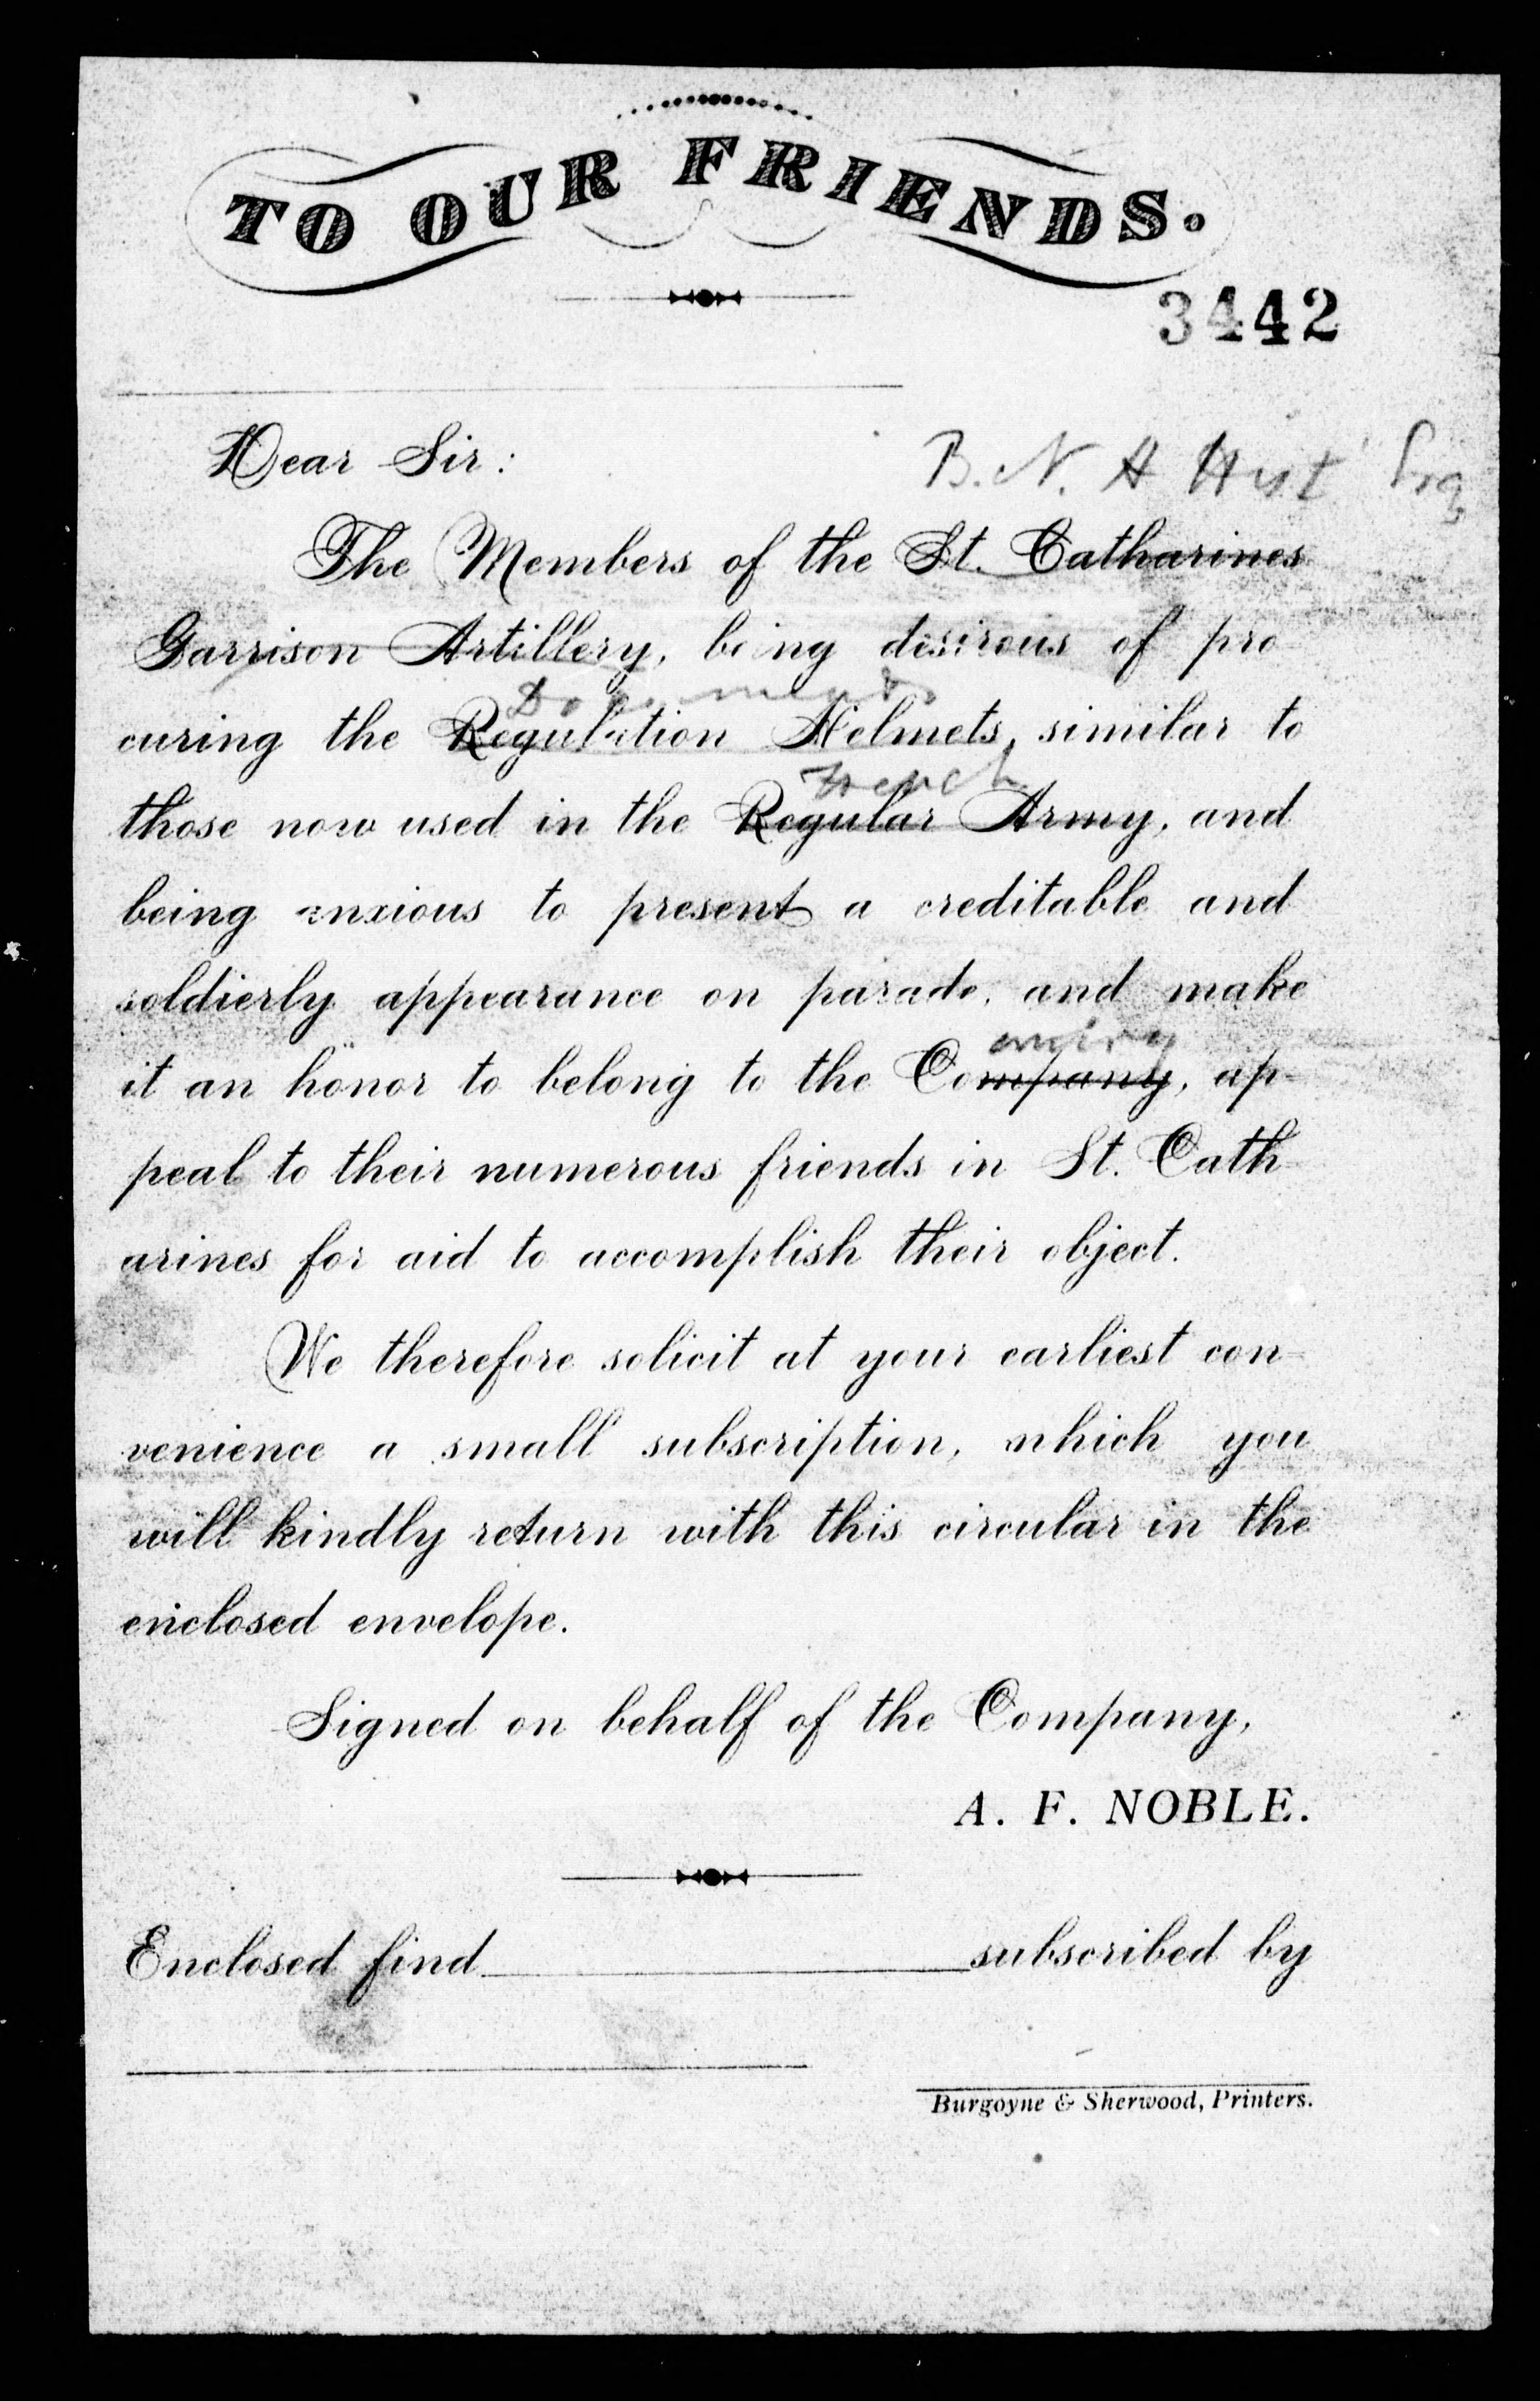 TO OUR FRIENDS.
3442
Dear Sir:
B. N. A Hist Esq
The Members of the St. Catharines
Garrison Artillery, being desirous of pro-
Documents
curing the Regulation Helmets, similar to
french
those now used in the Regular Army, and
being anxious to present a creditable and
soldierly appearance on parade, and make
it an honor to belong to the Company, ap-
peal to their numerous friends in St. Cath-
arines for aid to accomplish their object.
We therefore solicit at your earliest con-
venience a small subscription, which you
will kindly return with this circular in the
enclosed envelope.
Signed on behalf of the Company,
A. F. NOBLE.
Enclosed find subscribed by
Burgoyne & Sherwood, Printers.